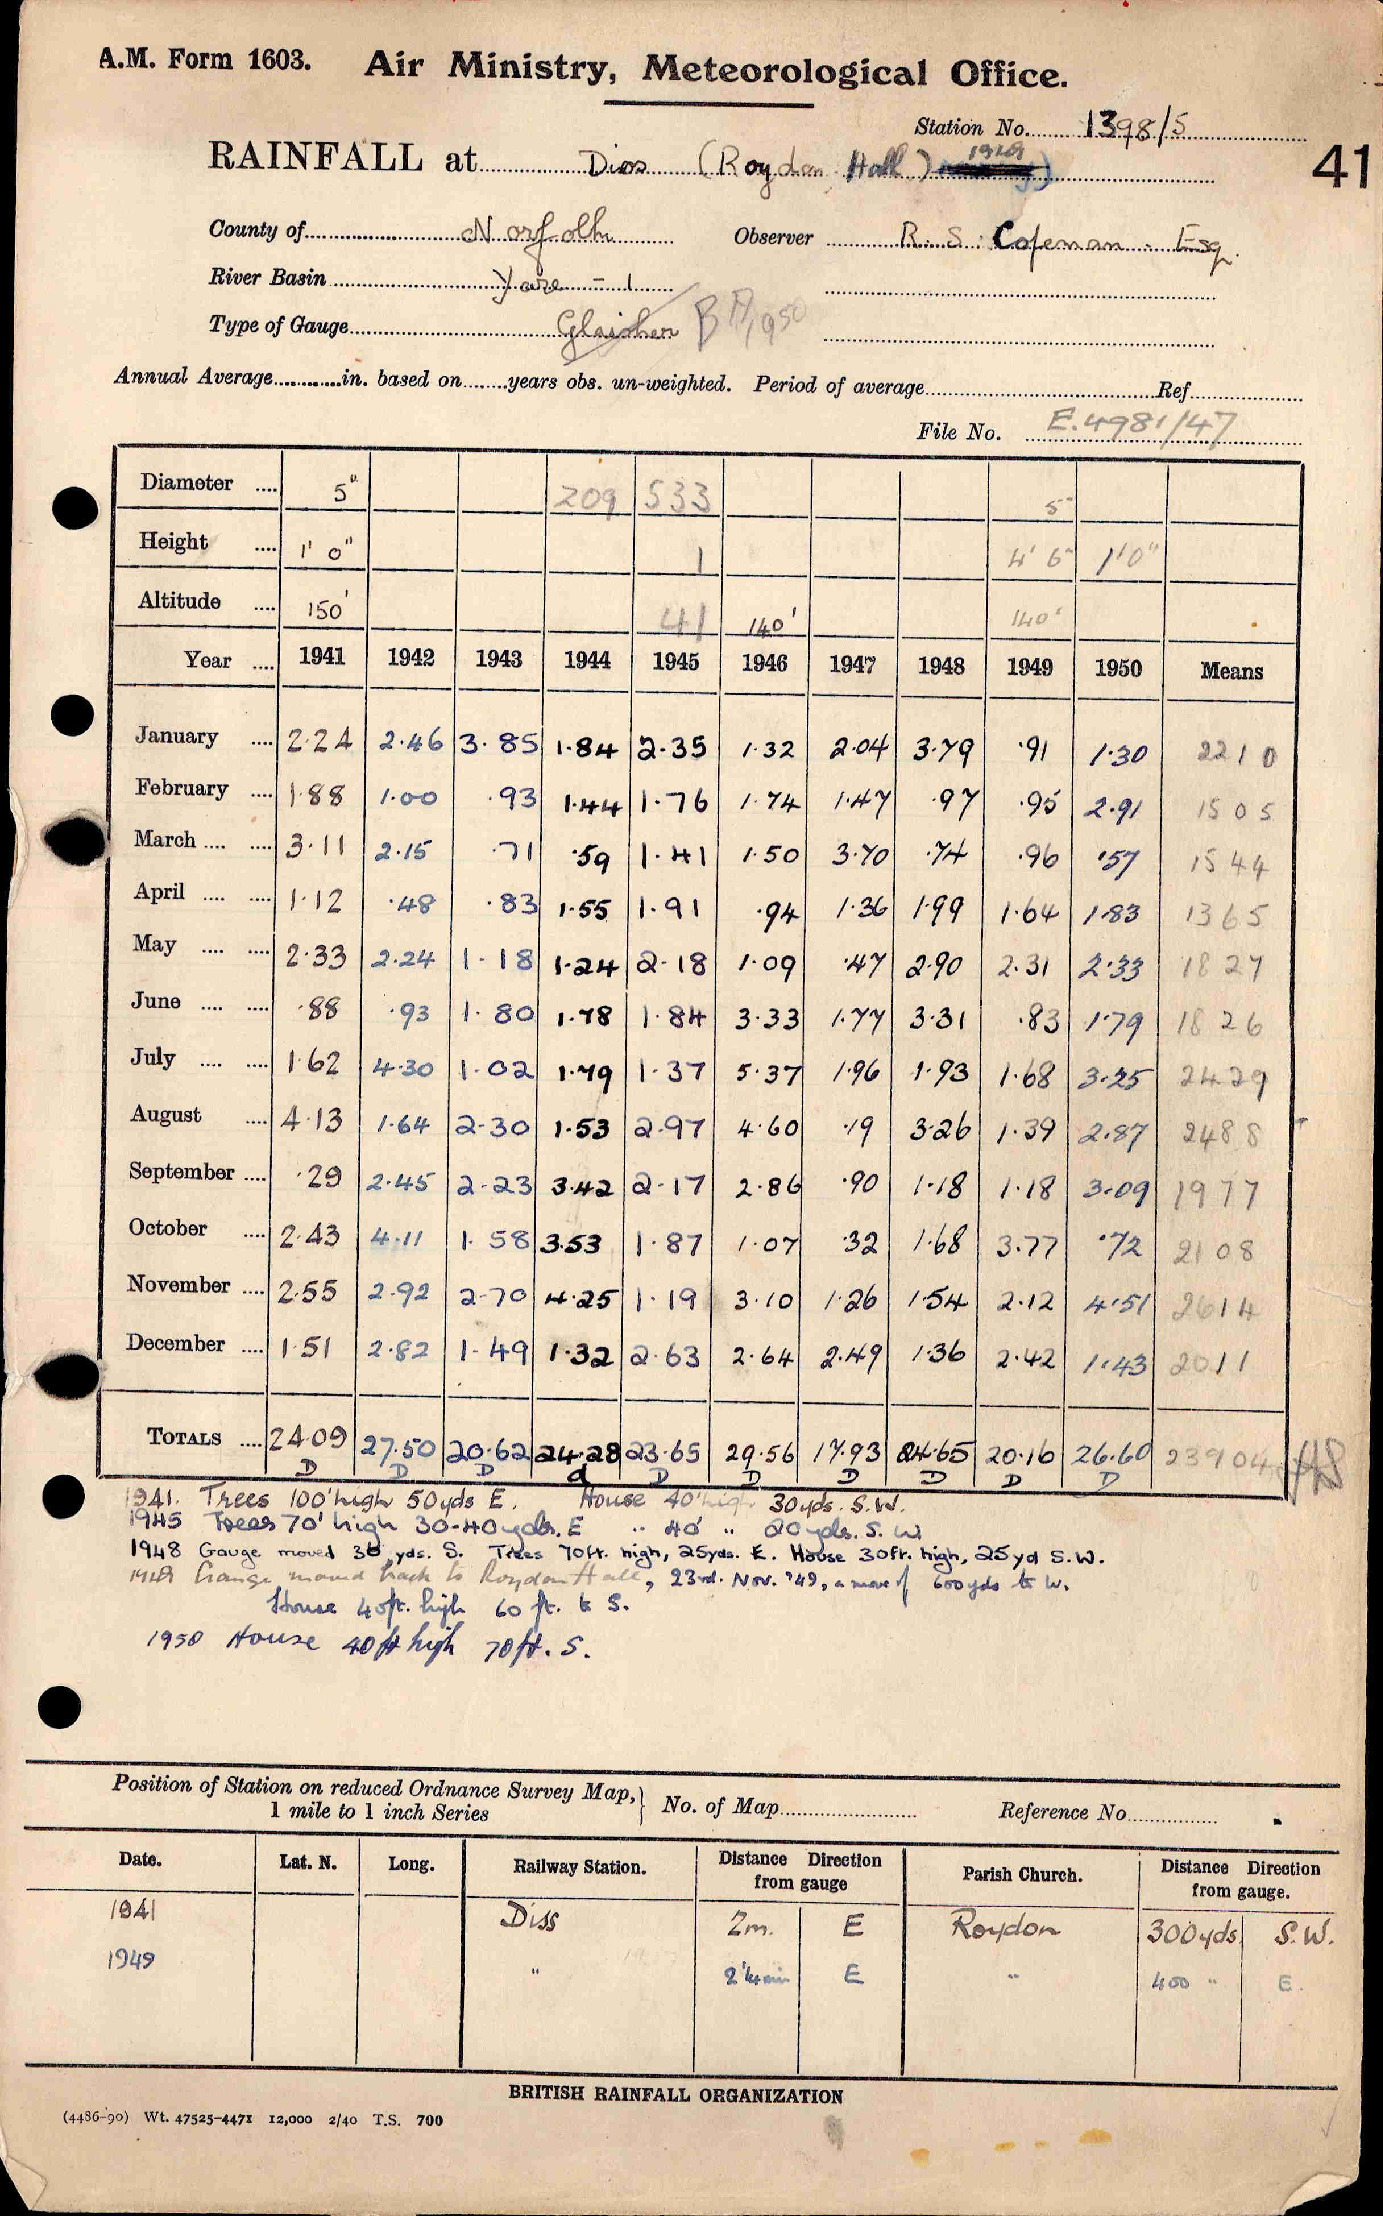 A.M. Form 1603. Air Ministry, Meteorological Office.
Station No. 1398/5
RAINFALL at Diss (Roydon Hall) 1949
41
County of Norfolk Observer R. S. Copeman. Esq.
River Basin Yare - 1
Type of Gauge Glaisher 1950
Annual Average in. based on years obs. un-weighted. Period of average Ref
File No. E.4981/47
Diameter .... 5" 209 533 5
Height .... 1' 0" 1 4' 6 1'0"
Altitude .... 150' 41 140' 140'
Year .... 1941 1942 1943 1944 1945 1946 1947 1948 1949 1950 Means
January .... 2.24 2.46 3.85 1.84 2.35 1.32 2.04 3.79 .91 1.30 2210
February .... 1.88 1.00 .93 1.44 1.76 1.74 1.47 .97 .95 2.91 1505
March .... .... 3.11 2.15 .71 .59 1.41 1.50 3.70 .74 .96 .57 1544
April .... .... 1.12 .48 .83 1.55 1.91 .94 1.36 1.99 1.64 1.83 1365
May .... .... 2.33 2.24 1.18 1.24 2.18 1.09 .47 2.90 2.31 2.33 1827
June .... .... .88 .93 1.80 1.78 1.84 3.33 1.77 3.31 .83 1.79 1826
July .... .... 1.62 4.30 1.02 1.79 1.37 5.37 1.96 1.93 1.68 3.25 2429
August .... 4.13 1.64 2.30 1.53 2.97 4.60 .19 3.26 1.39 2.87 2488
September .... .29 2.45 2.23 3.42 2.17 2.86 .90 1.18 1.18 3.09 1977
October .... 2.43 4.11 1.58 3.53 1.87 1.07 .32 1.68 3.77 .72 2108
November .... 2.55 2.92 2.70 4.25 1.19 3.10 1.26 1.54 2.12 4.51 2614
December .... 1.51 2.82 1.49 1.32 2.63 2.64 2.49 1.36 2.42 1.43 2011
TOTALS .... 24.09 27.50 20.62 24.28 23.65 29.56 17.93 24.65 20.16 26.60 23904
D D D d D D D D D D
1941. Trees 100' high 50yds E. House 40' high 30yds. S.W.
1945 Trees 70' high 30-40yds. E " 40' " 20yds. S.W
1948 Gauge moved 30 yds. S. Trees 70ft. high, 25yds. E. House 30ft. high, 25yd S.W.
1949 Gauge moved back to Roydon Hall, 23rd. Nov. '49, a move of 600yds to W.
House 40ft. high 60 ft. to S.
1950 House 40ft high 70ft. S.
Position of Station on reduced Ordnance Survey Map, 1 mile to 1 inch Series No. of Map Reference No.
Date. Lat. N. Long. Railway Station. Distance Direction from gauge Parish Church. Distance Direction from gauge.
1941 Diss 2m. E Roydon 300yds. S.W.
1949 " 2¼ E " 400 " E.
BRITISH RAINFALL ORGANIZATION
(4486-90) Wt. 47525-4471 12,000 2/40 T.S. 700